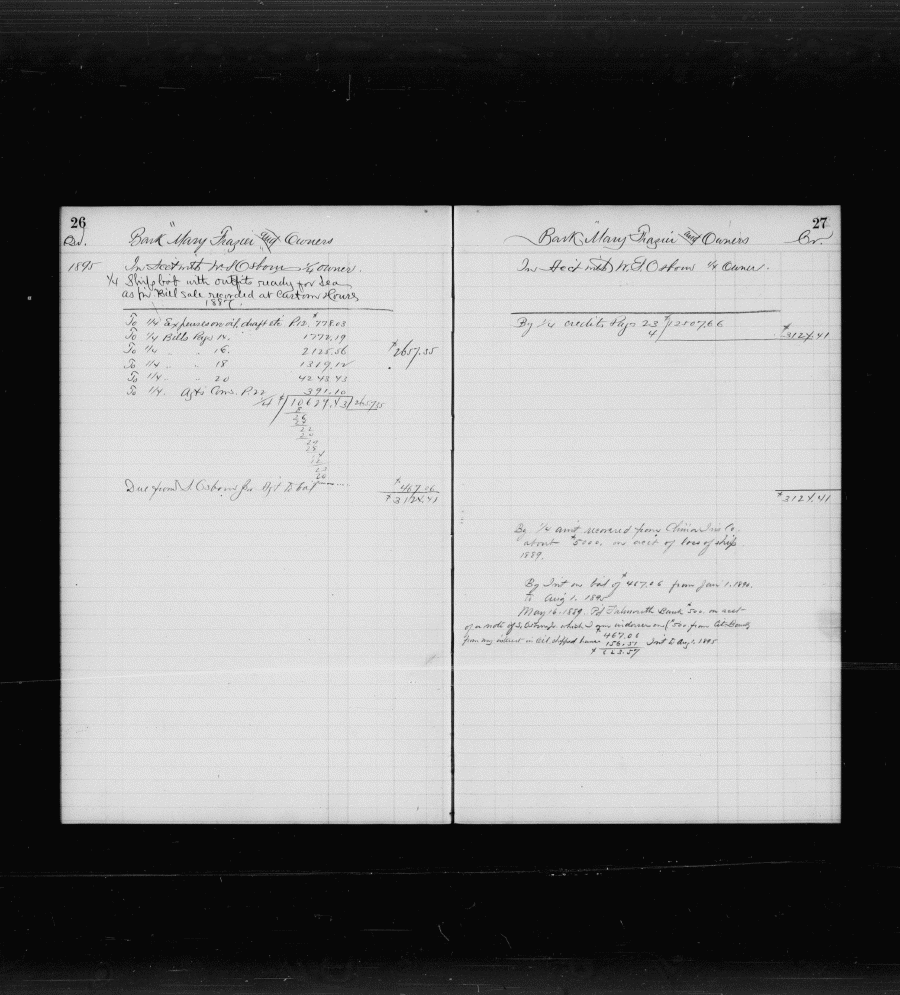 26
Dr.
Bark "Mary Frazier" and Owners
1895 In Acct with W. F. Osborn 1/4 Owner.
1/4 Ship bot with outfits ready for Sea
as pr. Bill Sale recorded at Custom House
1887.
To 1/4 Expenses on oil, draft etc P.12. $778.03
To 1/4 Bills Page 14. 1772.19
To 1/4 " " 16. 2125.56 $2657.35
To 1/4 " " 18 1319.12
To 1/4 " " 20 4243.43
To 1/4 " Agts Com. P.22 391.10
1/4 $10629.43 2657.35
8
26
24
22
20
29
28
14
12
23
20
Due from Osborn Jr. Agt to bal
$467.06
$3124.41
27
Bark "Mary Frazier" and Owners
Cr.
In Acct with W. F. Osborn 1/4 Owner.
By 1/4 credits Page 23 $12507.66
4 $3124.41
$3124.41
By 1/4 amt recovered from China Ins Co.
about $5000. on acct of loss of ship
1889.
By Int on bal of $467.06 from Jan 1. 1890.
to Aug 1. 1895
May 16. 1889. Pd Falmouth Bank $500. on acct
of a note of which I am indorser
from any interest in oil shipped home
$467.06
156.51 Int to Aug 1. 1895
$623.57